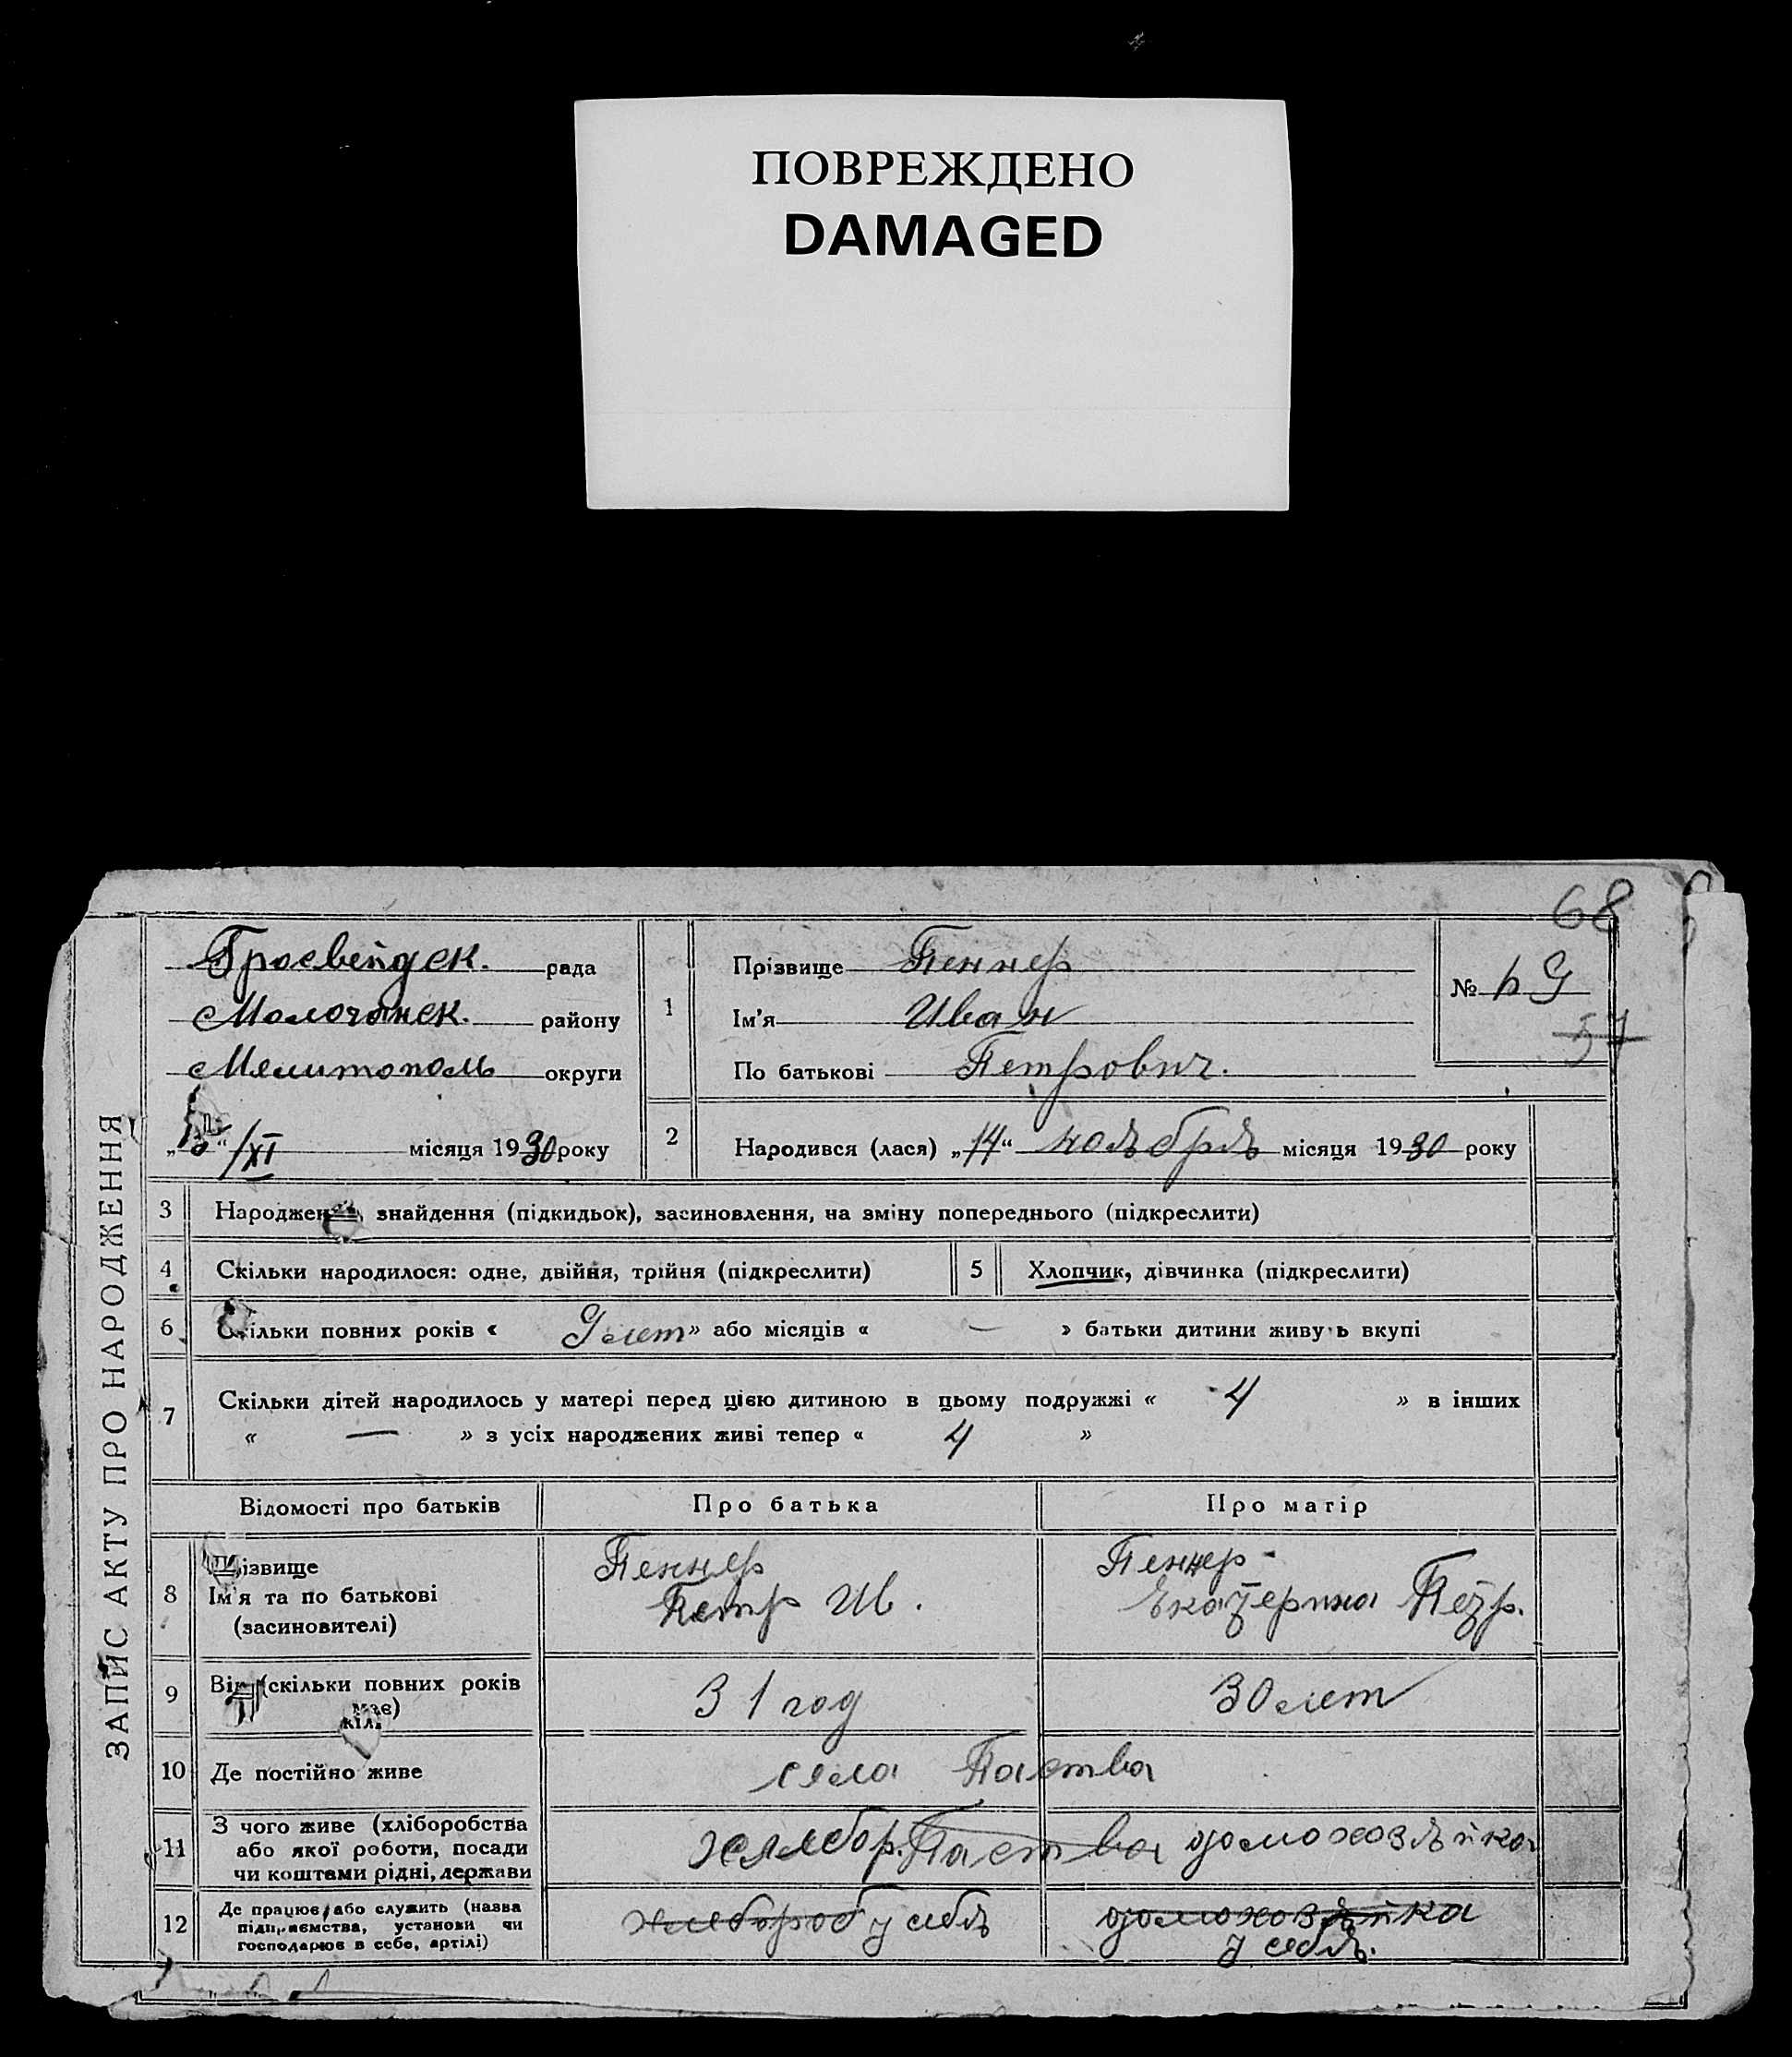 ПОВРЕЖДЕНО
DAMAGED
68
ЗАПИС АКТУ ПРО НАРОДЖЕННЯ
Гросвейдек. рада
Молочанск. району
Мелитополь округи
/XI місяця 1930 року
1
Прізвище Пеннер
Ім'я Иван
По батькові Петрович.
№
57
2
Народився (лася) „14“ ноября місяця 1930 року
3 Народження, знайдення (підкидьок), засиновлення, на зміну попереднього (підкреслити)
4 Скільки народилося: одне, двійня, трійня (підкреслити)
5 Хлопчик, дівчинка (підкреслити)
6 Скільки повних років « 9 лет » або місяців « — » батьки дитини живуть вкупі
7 Скільки дітей народилось у матері перед цією дитиною в цьому подружжі « 4 » в інших
« — » з усіх народжених живі тепер « 4 »
Відомості про батьків Про батька Про матір
8 Прізвище
Ім'я та по батькові
(засиновителі)
Пеннер
Петр Ив.
Пеннер
Екатерина Петр.
9 Вік (скільки повних років
має)
31 год
30 лет
10 Де постійно живе
села Паства
11 З чого живе (хліборобства
або якої роботи, посади
чи коштами рідні, держави
хлебор. Паства домохозяйка
12 Де працює, або служить (назва
підприємства, установи чи
господарює в себе, артілі)
хлебороб у себя
домохозяйка
у себя.